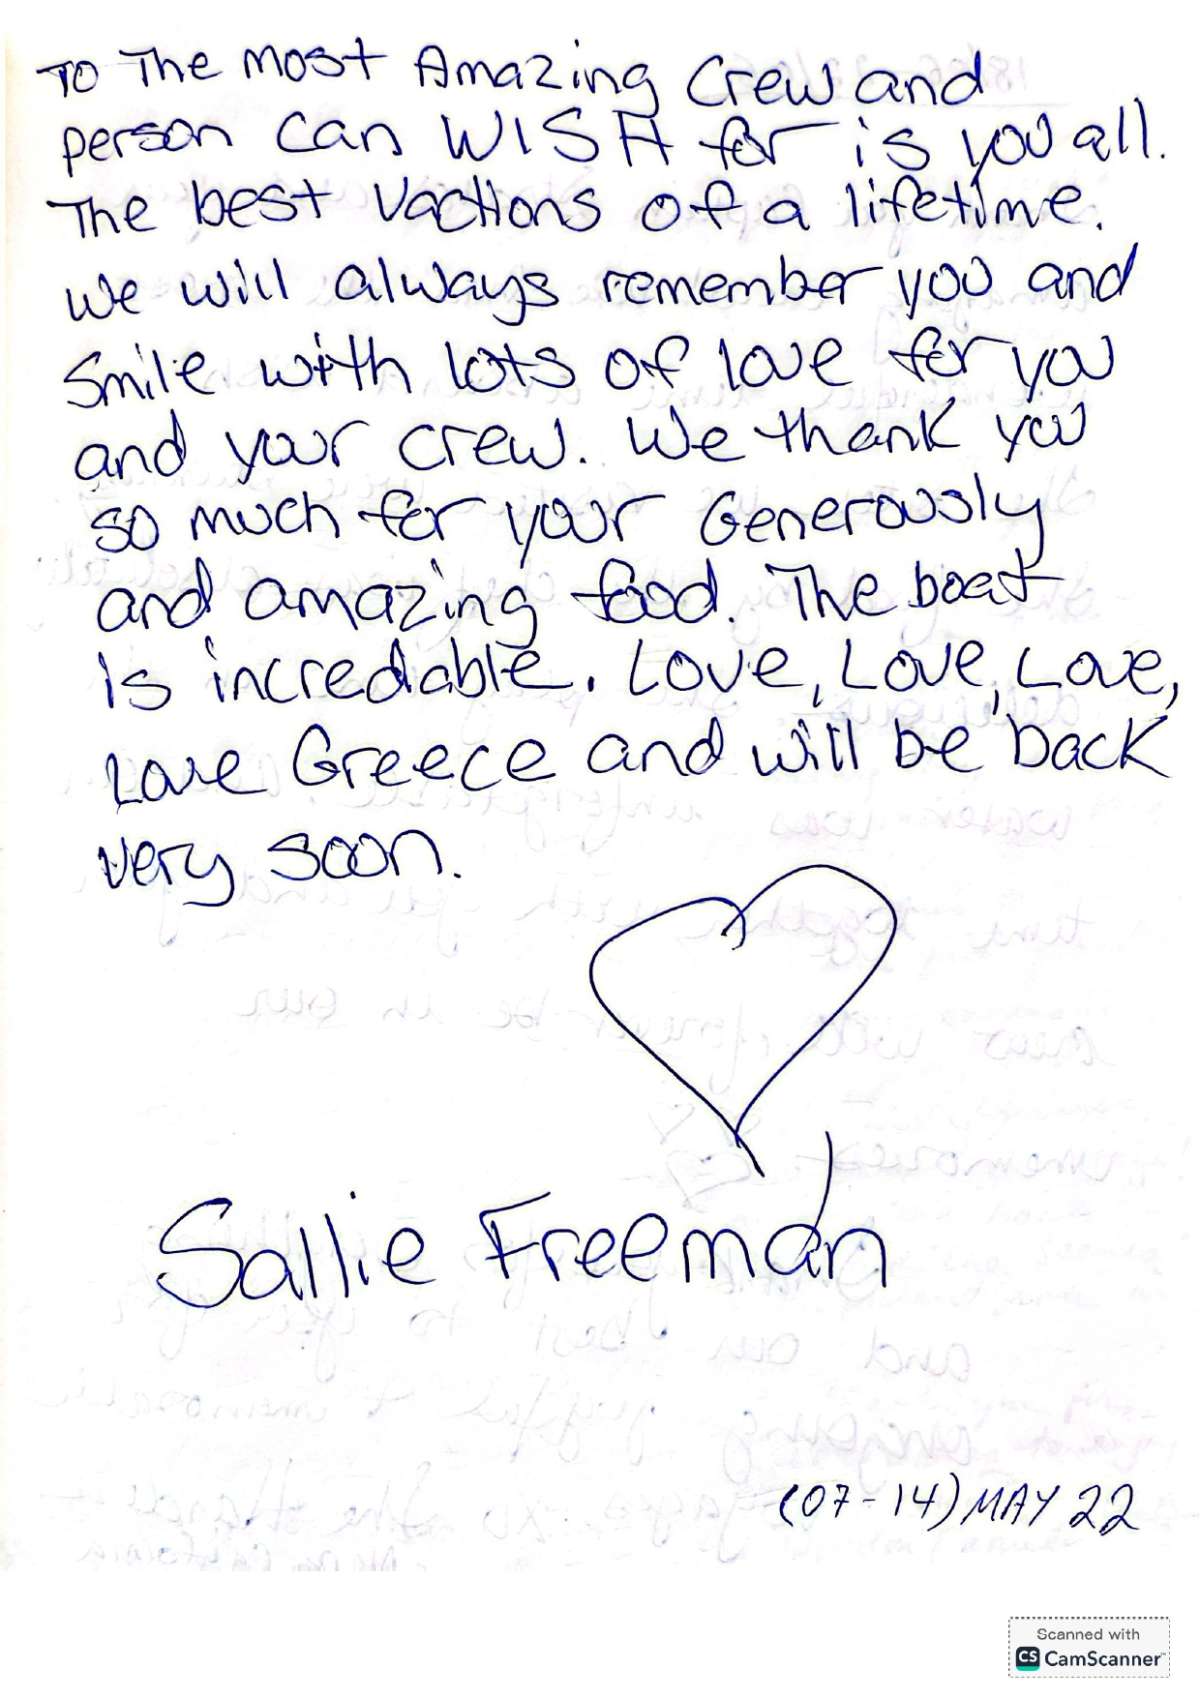 To The Most Amazing Crew and
person can WISH for is you all.
The best Vactions of a lifetime.
We will always remember you and
Smile with lots of love for you
and your crew. We thank you
so much for your Generously
and amazing food. The boat
is incrediable. Love, Love, Love,
Love Greece and will be back
very soon.
Sallie Freeman
(07-14) MAY 22
Scanned with
CS CamScanner